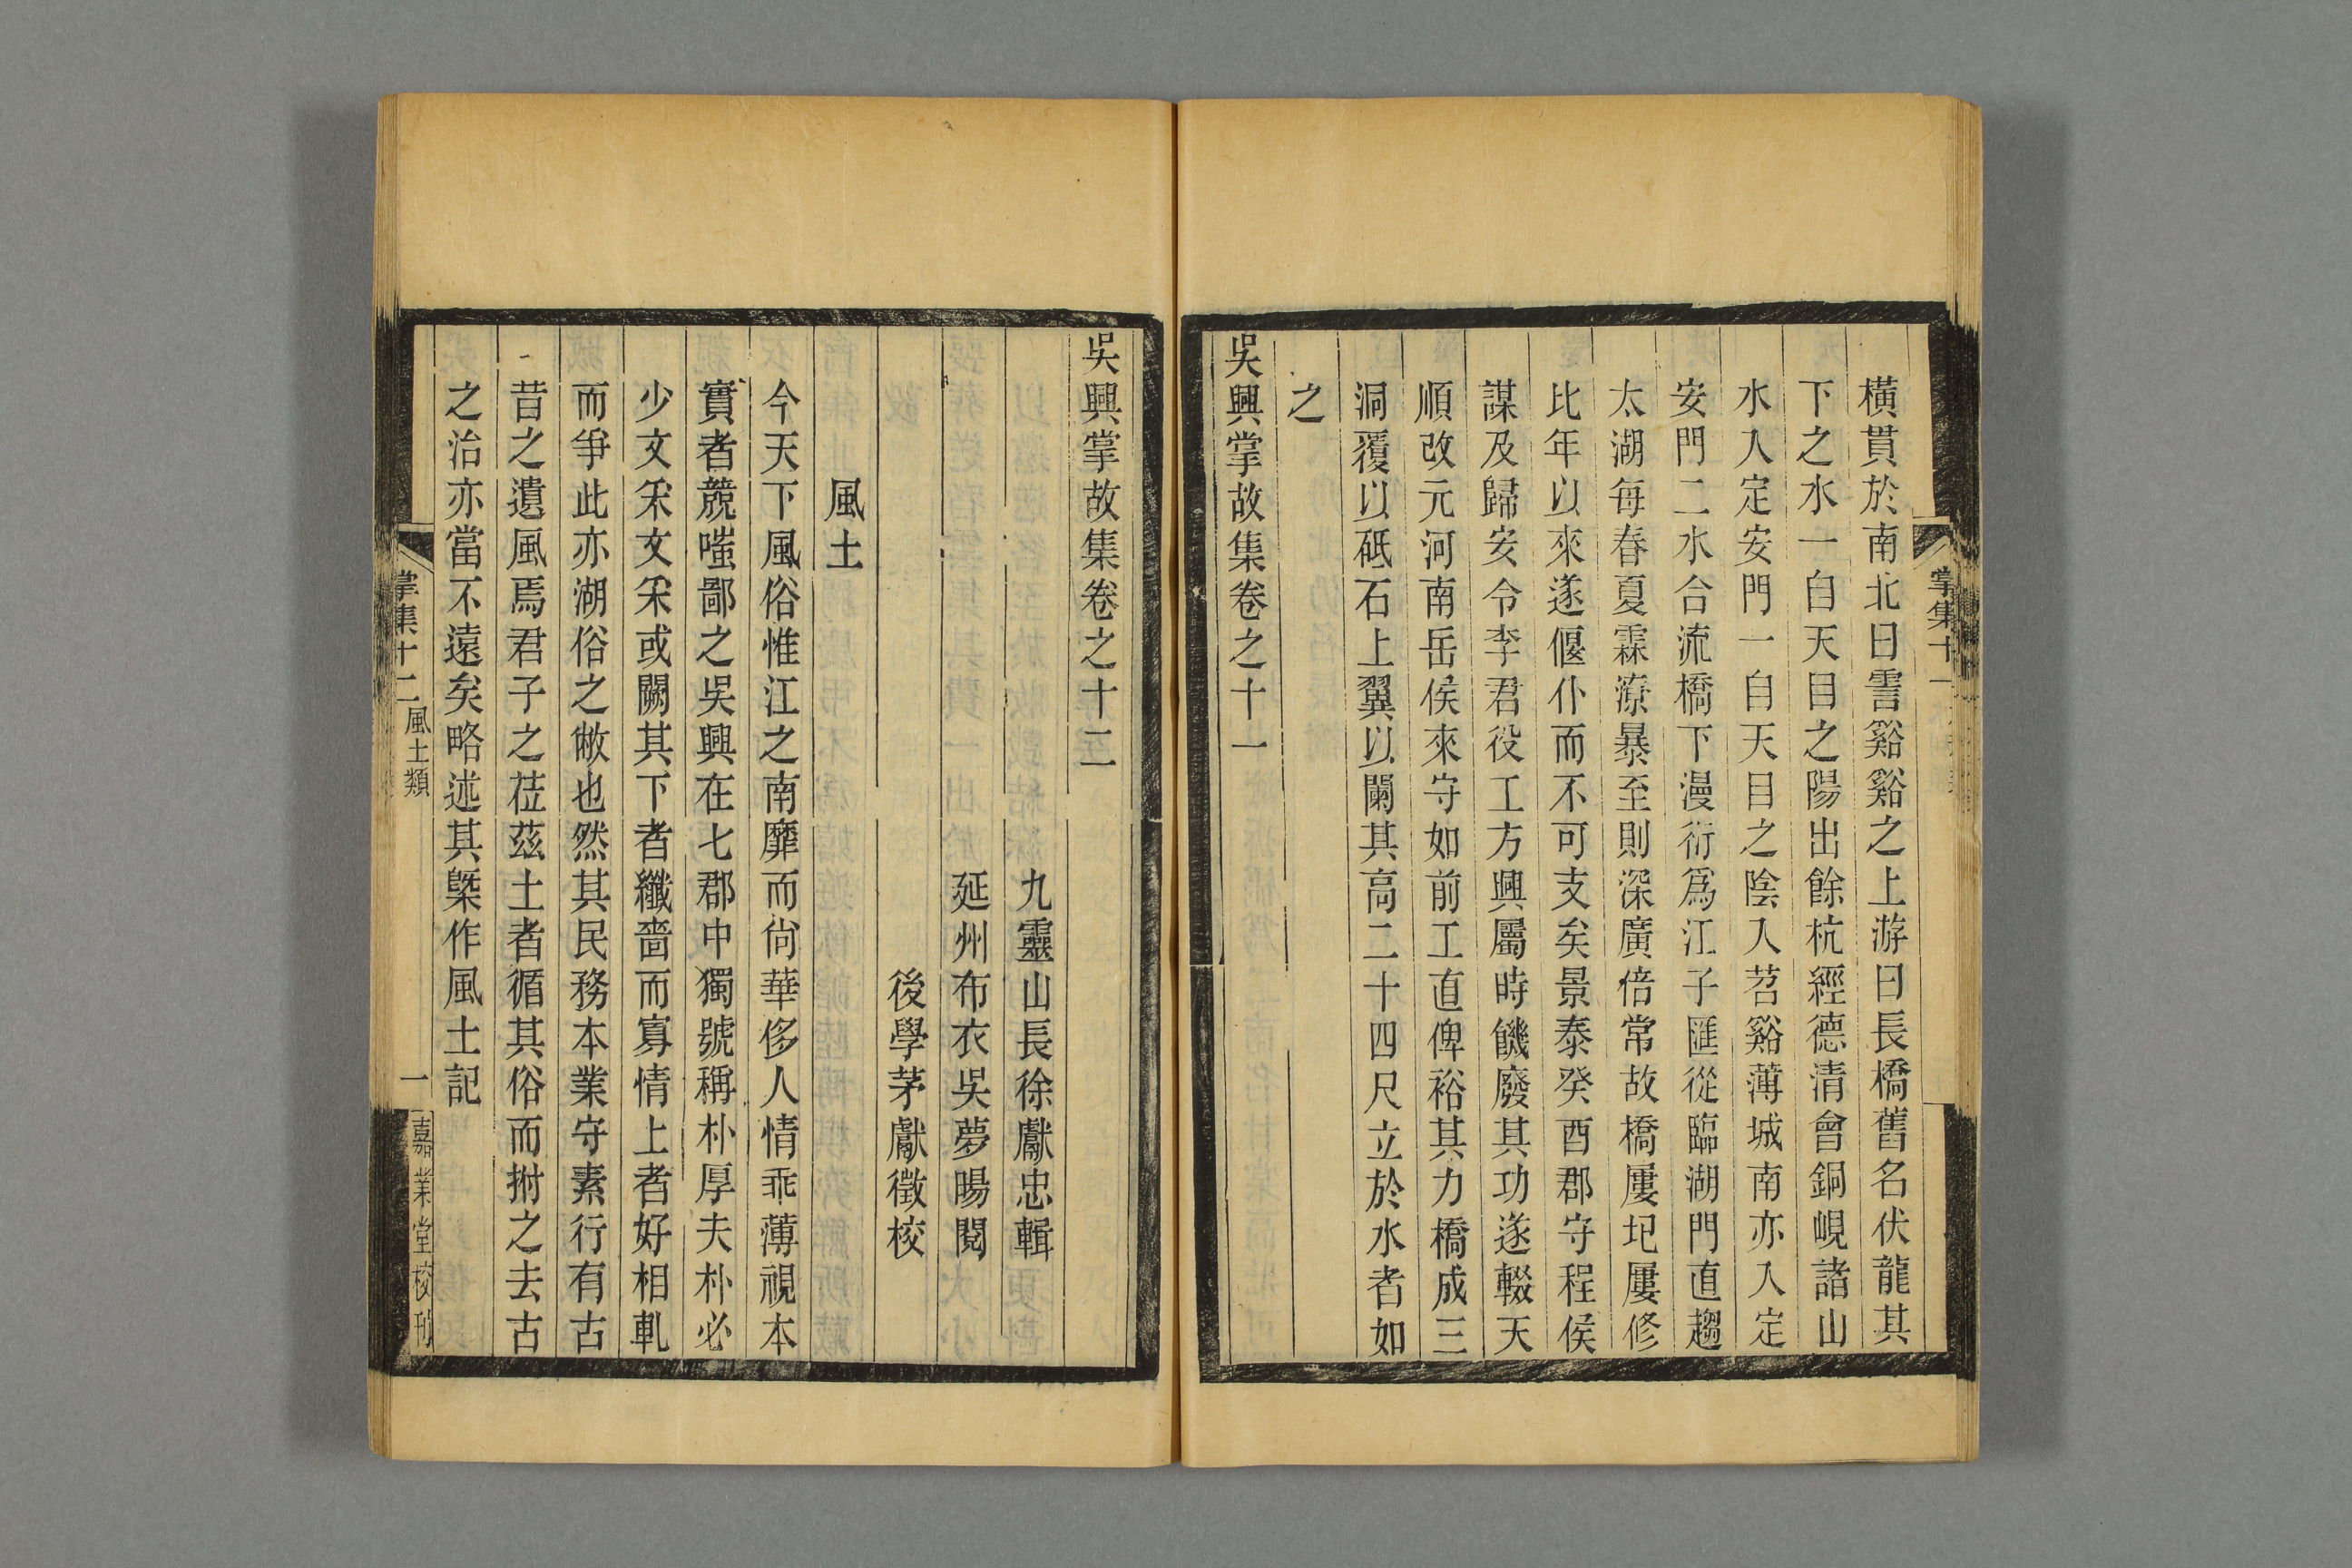 橫貫於南北曰霅谿谿之上游曰長橋舊名伏龍其
下之水一自天目之陽出餘杭經德清會銅峴諸山
水入定安門一自天目之陰入苕谿薄城南亦入定
安門二水合流橋下漫衍爲江子匯從臨湖門直趨
太湖每春夏霖潦暴至則深廣倍常故橋屢圮屢修
比年以來遂偃仆而不可支矣景泰癸酉郡守程侯
謀及歸安令李君役工方興屬時饑廢其功遂輟天
順改元河南岳侯來守如前工直俾裕其力橋成三
洞覆以砥石上翼以闌其高二十四尺立於水者如
之
吳興掌故集卷之十一
掌集十一
吳興掌故集卷之十二
九靈山長徐獻忠輯
延州布衣吳夢暘閱
後學茅獻徵校
風土
今天下風俗惟江之南靡而尙華侈人情乖薄視本
實者競嗤鄙之吳興在七郡中獨號稱朴厚夫朴必
少文釆文釆或闕其下者纖嗇而寡情上者好相軋
而爭此亦湖俗之敝也然其民務本業守素行有古
昔之遺風焉君子之莅茲土者循其俗而拊之去古
之治亦當不遠矣略述其槩作風土記
掌集十二 風土類 一 嘉業堂校刊